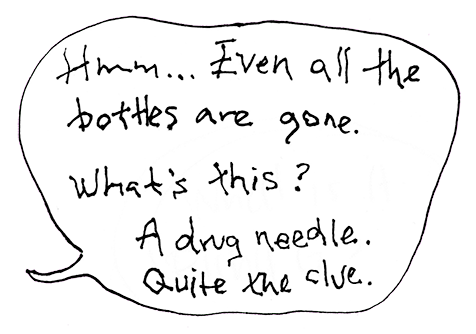 Hmm... Even all the
bottles are gone.
What's this?
A drug needle.
Quite the clue.